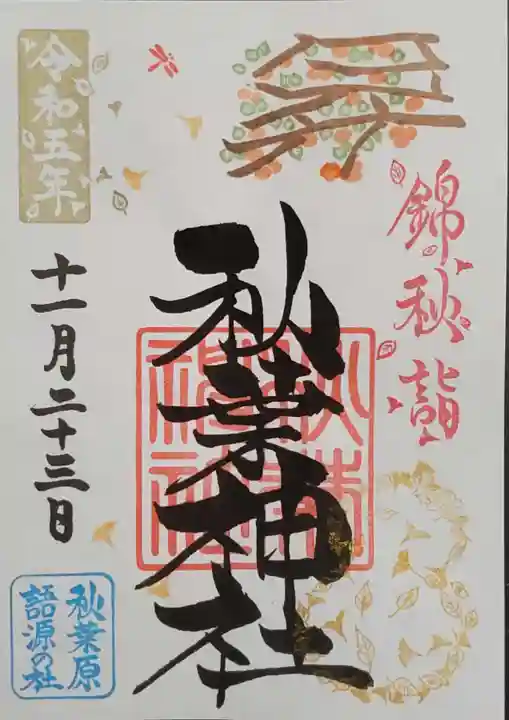 錦秋詣
秋葉神社
秋葉神社
令和五年
十一月二十三日
秋葉原
語源の社